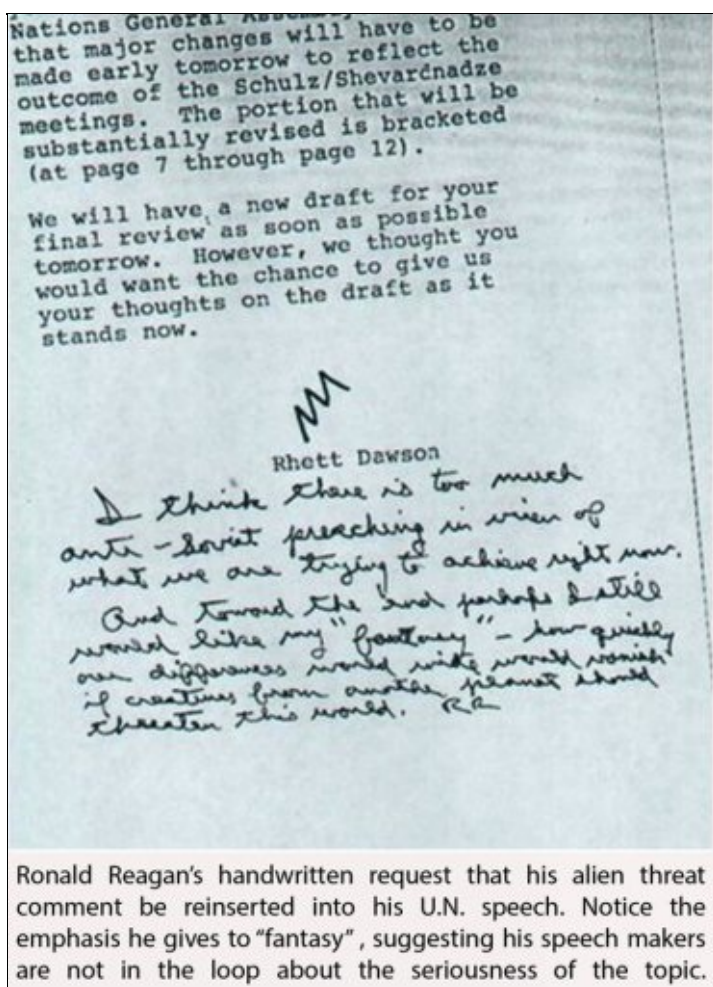 Nations General Assembly
that major changes will have to be
made early tomorrow to reflect the
outcome of the Schulz/Shevardnadze
meetings. The portion that will be
substantially revised is bracketed
(at page 7 through page 12).
We will have a new draft for your
final review as soon as possible
tomorrow. However, we thought you
would want the chance to give us
your thoughts on the draft as it
stands now.
Rhett Dawson
I think there is too much
anti-Soviet preaching in view of
what we are trying to achieve right now.
And toward the end perhaps I still
would like my "fantasy" – how quickly
our differences world wide would vanish
if creatures from another planet should
threaten this world. RR
Ronald Reagan's handwritten request that his alien threat
comment be reinserted into his U.N. speech. Notice the
emphasis he gives to "fantasy", suggesting his speech makers
are not in the loop about the seriousness of the topic.